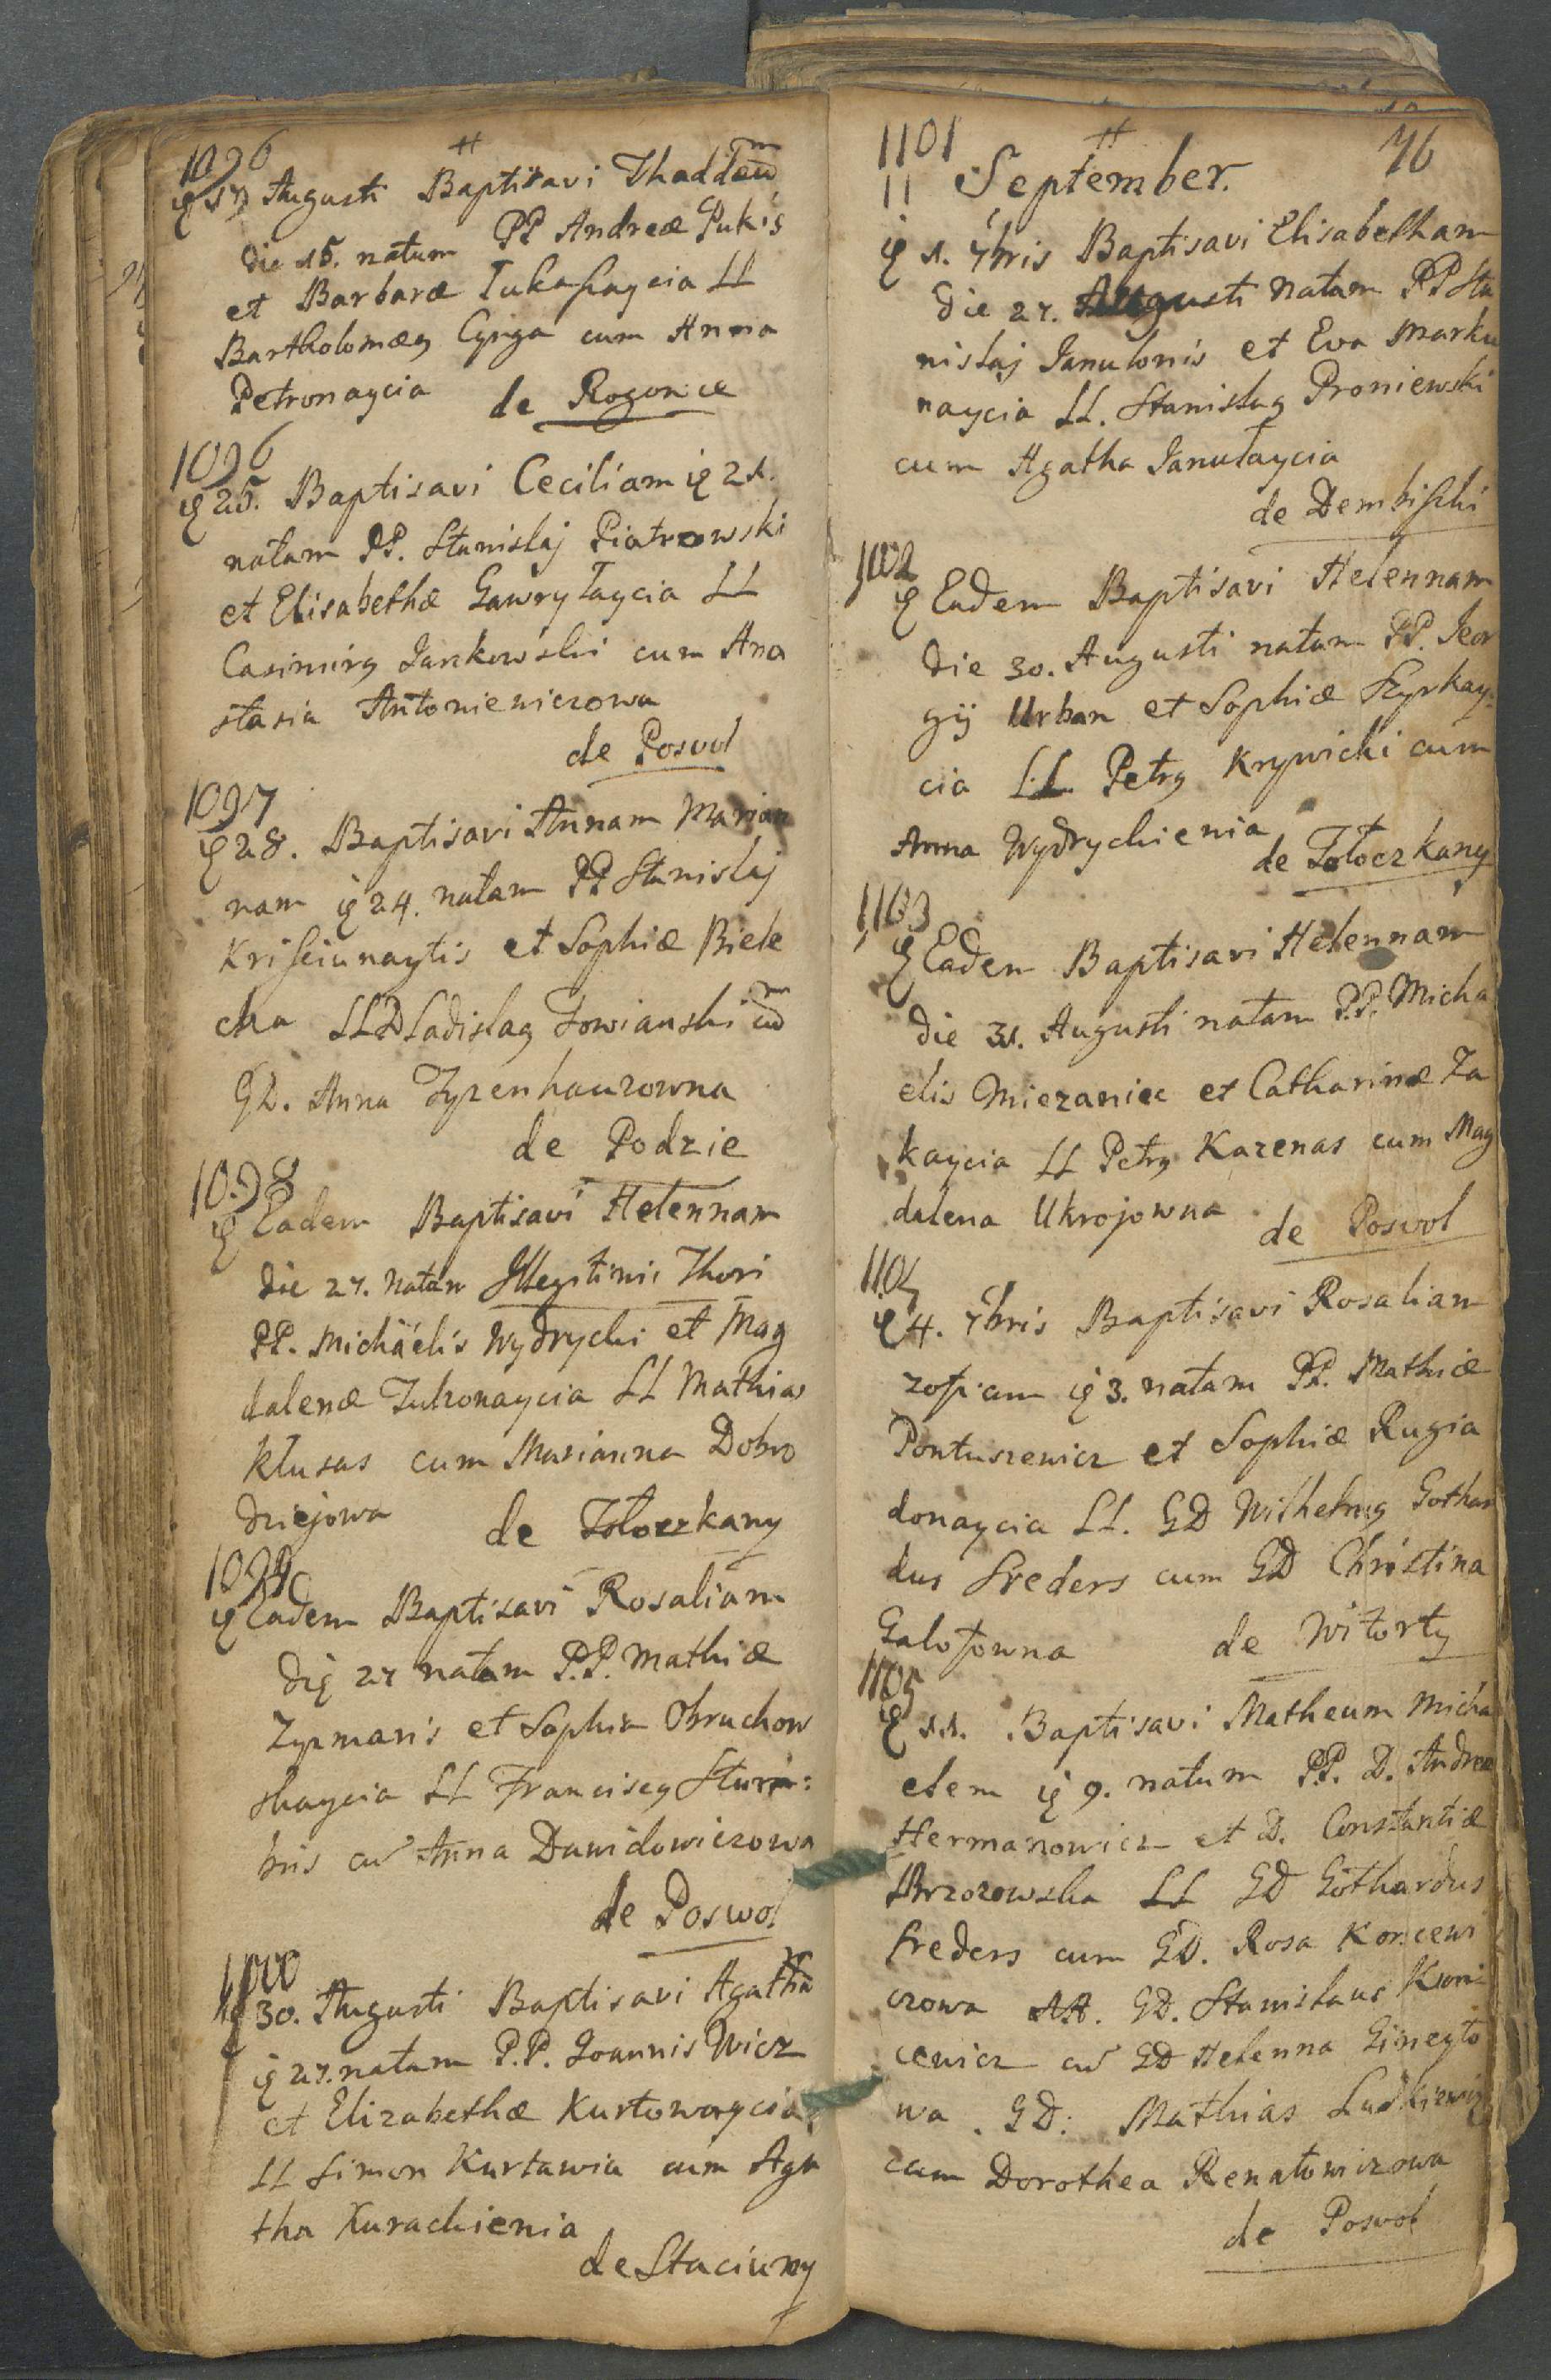 1096
17 Augusti Baptisavi Thaddeum
die 15. natum PP Andreæ Pukis
et Barbaræ LL
Bartholomæq Cynga cum Anna
Petronaycia de Rogonce
1096
25. Baptisavi Ceciliam 21.
natam PP. Stanislaj Piatrowski
et Elisabethæ Gawryłaycia LL
Casimirq Jankowski cum Ana
stasia Antoniewiczowa
de Posvol
1097
28. Baptisavi Annam Marian
nam 24. natam PP Stanislaj
Krisciunaytis et Sophiæ Biele
cka LL Towianski cum
GD. Anna Tyzenhauzowna
de Podzie
1098
Eadem Baptisavi Helennam
die 27. natam Illegitimi Thori
PP. Michäelis Wydrychi et Mag
dalenæ LL Mathias
Kłusas cum Marianna Dobro
dziejowa de Tołoczkany
1099
Eadem Baptisavi Rosaliam
die 27 natam P.P. Mathiæ
Zyzmaris et Sophia Obruchow
skaycia LL Franciscq
cum Anna Dawidowiczowa
de Poswol
1100
30. Augusti Baptisavi Agatham
27. natam P.P. Joannis Wicz
et Elizabethæ Kurtowaycia
LL Simon Kurtawia cum Aga
tha Kurachienia
de Staciuny
1101 76
11 September.
1. 7bris Baptisavi Elisabetham
die 27. Augusti natam PP Sta
nislaj Janulonis et Eva Marku
naycia LL. Stanislaq Proniewski
cum Agatha Janułaycia
de Dembischi
1102
Eadem Baptisavi Helennam
die 30. Augusti natam PP. Jeor
gij Urban et Sophiæ Szyrkay=
cia LL Petrq Krywicki cum
Anna Wydrychienia
de Tołoczkany
1103
Eadem Baptisavi Helennam
die 31. Augusti natam P.P. Micha
elis Miezaniec et Catharinæ Za
kaycia LL Petrq Kazenas cum Mag
dalena Ukrojowna
de Poswol
1104
4. 7bris Baptisavi Rosaliam
zofiam 3. natam PP. Mathiæ
Pontuszewicz et Sophiæ Rugia
donaycia LL. GD Wilhelmq Gothar
dus Freders cum GD Christina
Galofowna de Witorty
1105
11. Baptisavi Matheum Micha
elem 9. natum P.P. D. Andreæ
Hermanowicz et D. Constantiæ
Brzozowska LL GD Gothardus
Freders cum GD. Rosa Koncewi
czowa AA. GD. Stanislaus Kon=
cewicz cum GD Helenna Gineyto
wa. GD: Mathias Ludkiewicz
cum Dorothea Renatowiczowa
de Poswol